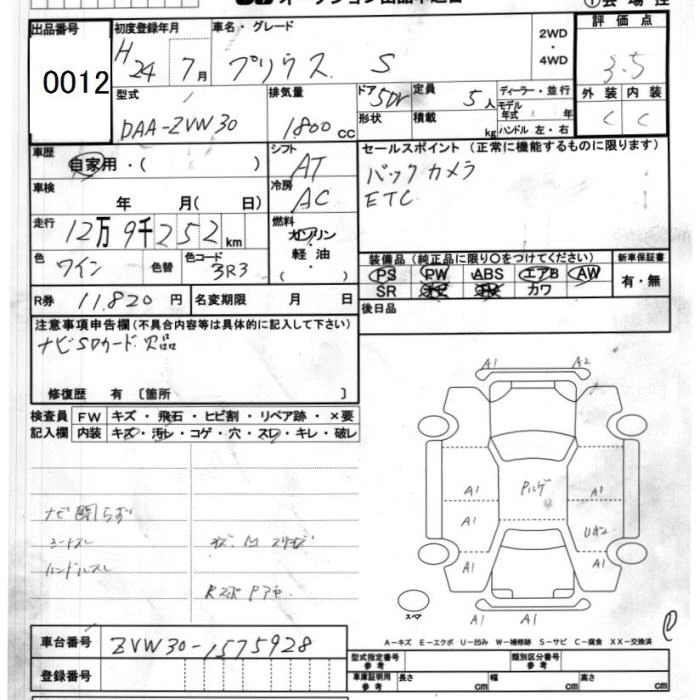 出品番号 初度登録年月 車名・グレード 2WD・4WD 評価点
0012 H24 7月 プリウス S 3.5
型式 排気量 ドア 定員 ディーラー・並行 外装 内装
DAA-ZVW30 1800cc 5Dr 5人 モデル年式 年 C C
形状 積載 kg ハンドル 左・右
車歴 自家用・( ) シフト AT セールスポイント(正常に機能するものに限ります)
車検 年 月( 日) 冷房 AC バックカメラ
ETC
走行 12万9千252km 燃料 ガソリン・軽油・( )
色 ワイン 色替 色コード 3R3
装備品(純正品に限り○をつけてください) 新車保証書
PS PW ABS エアB AW 有・無
SR カワ
R券 11,820円 名変期限 月 日 後日品
注意事項申告欄(不具合内容等は具体的に記入して下さい)
ナビSDカード欠品
修復歴 有〔箇所 〕
検査員 FW キズ・飛石・ヒビ割・リペア跡・×要
記入欄 内装 キズ・汚レ・コゲ・穴・スレ・キレ・破レ
ナビ開らず
シートスレ
ハンドルスレ
A1 A2
A1 A1
A1
A1 A1
A1 A1
スペア
A-キズ E-エクボ U-凹み W-補修跡 S-サビ C-腐食 XX-交換済
車台番号 ZVW30-1575928
登録番号
型式指定番号 参考 類別区分番号 参考
車庫証明用 参考 長さ cm 幅 cm 高さ cm